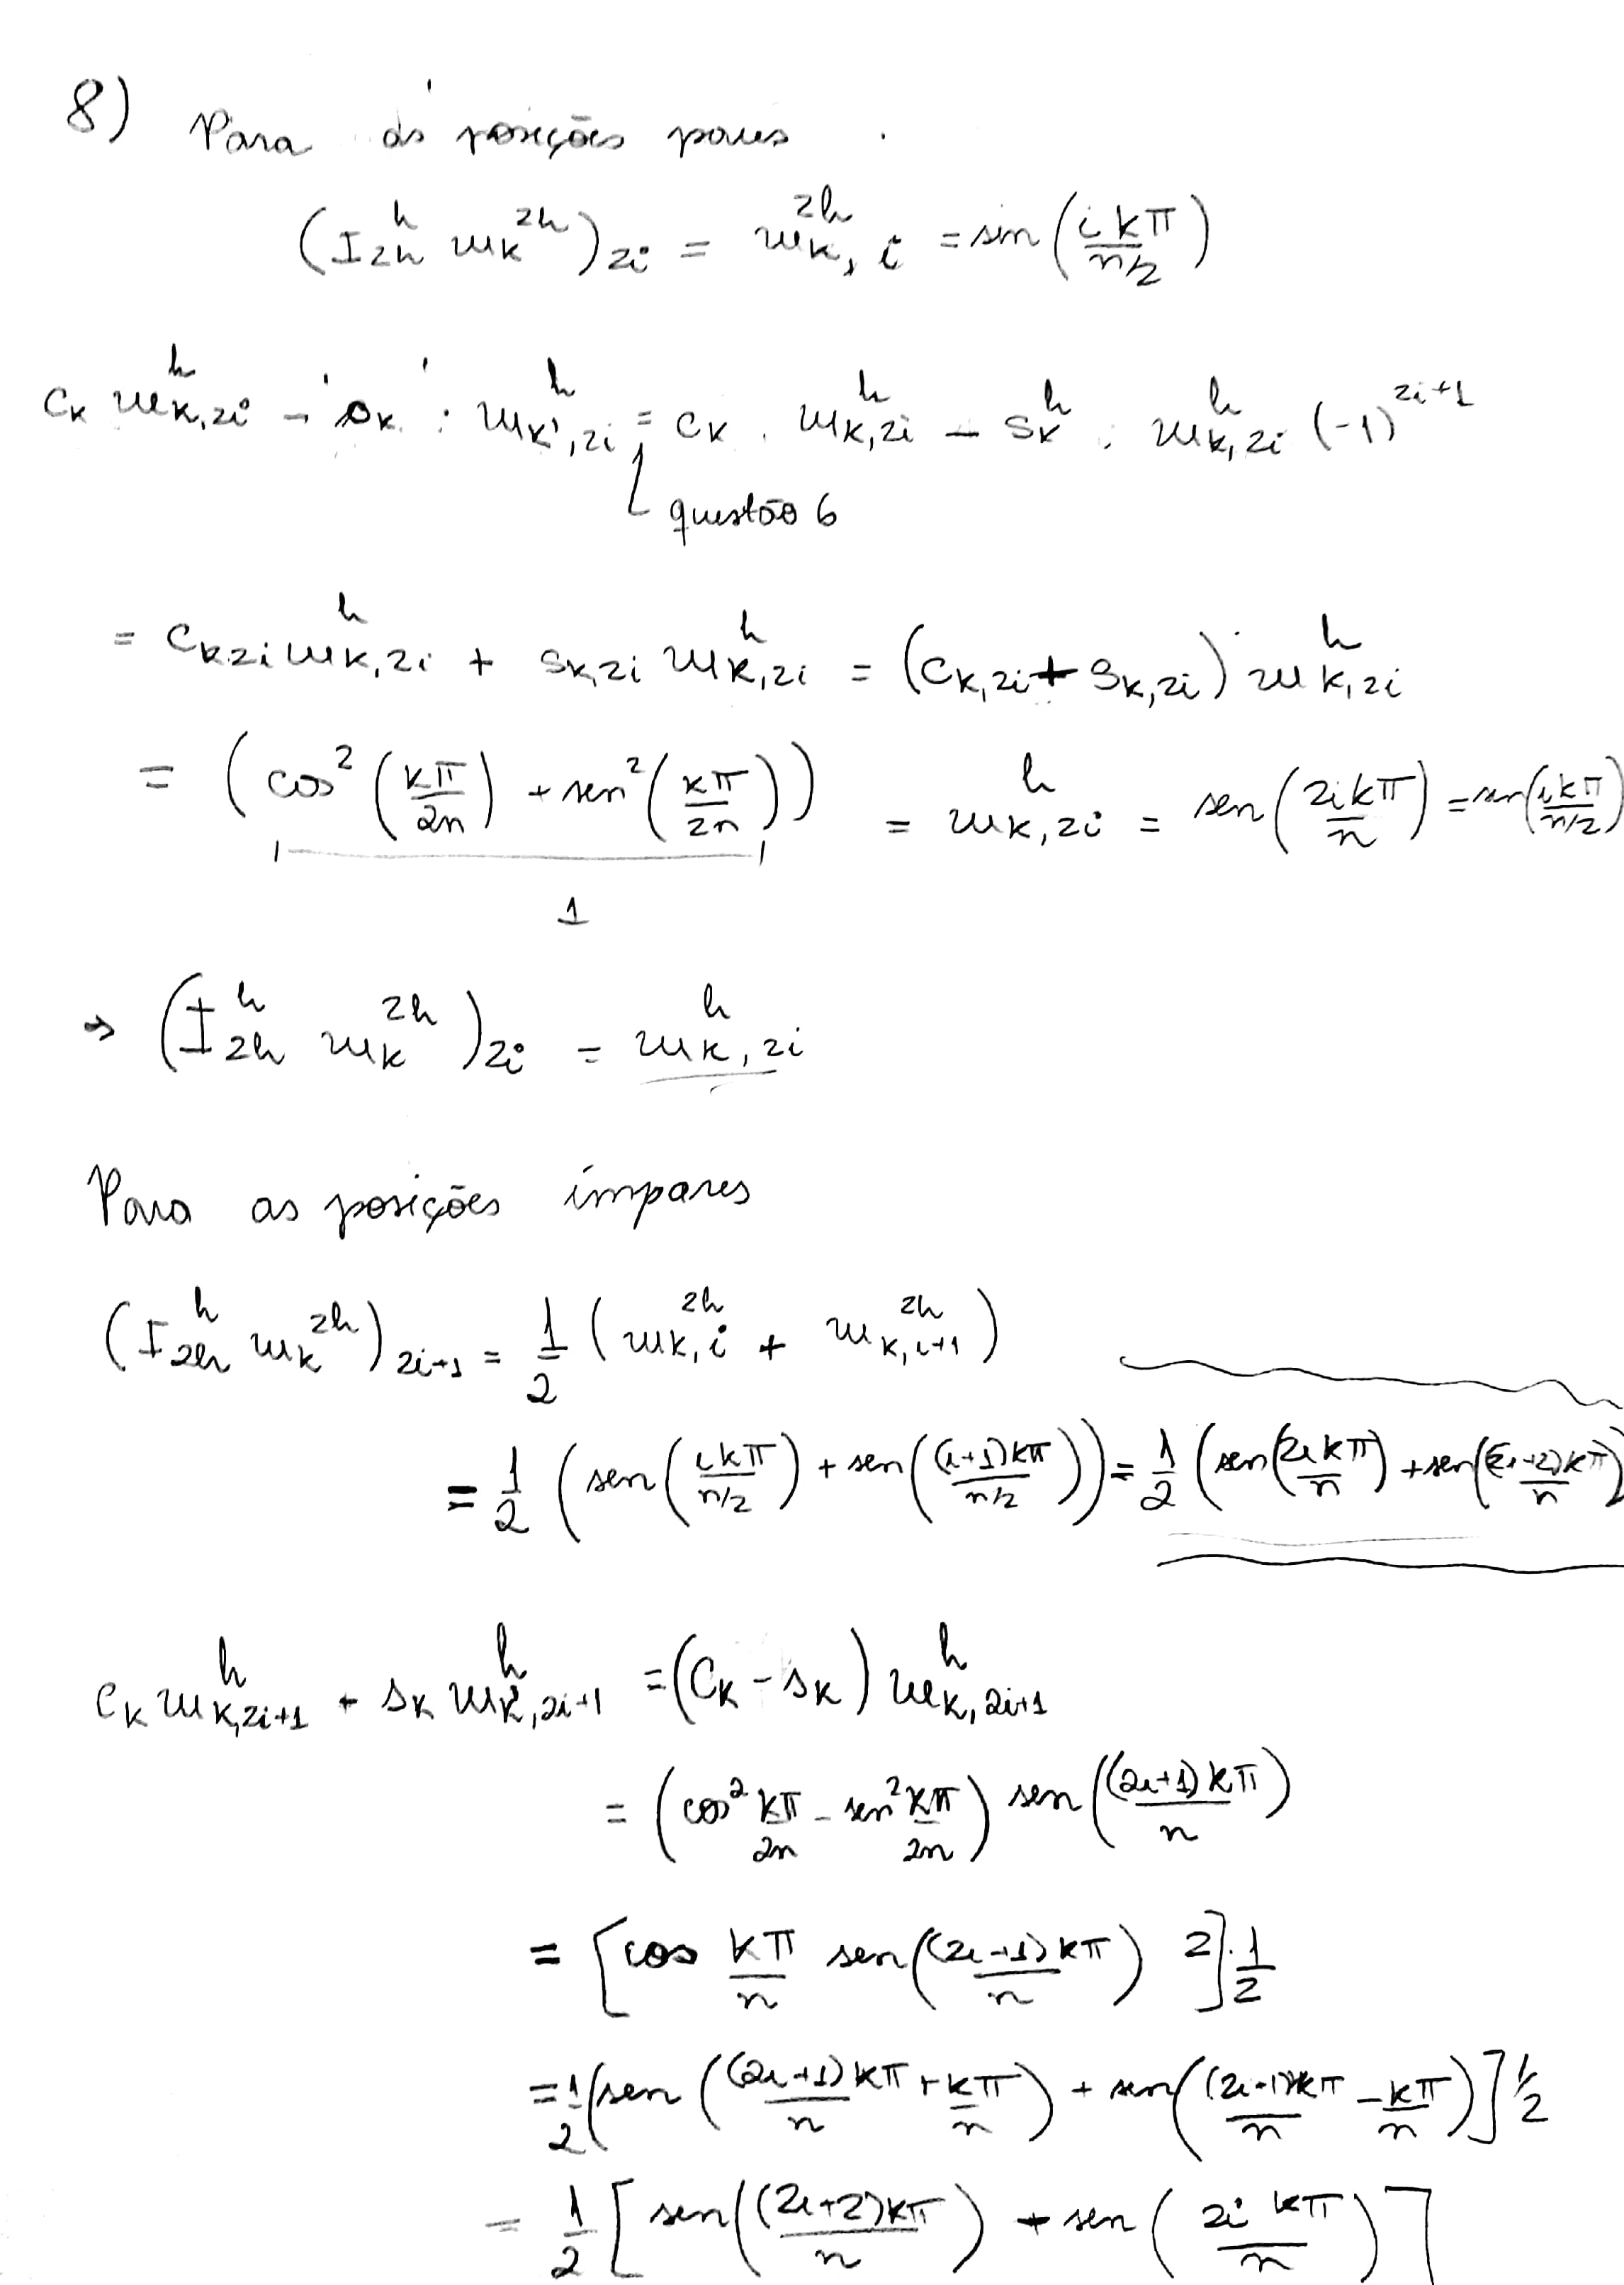 8) Para as posições pares
(I_{2h}^{h} w_k^{2h})_{2i} = w_{k,i}^{2h} = sen(ikπ / n/2)
c_k w_{k,2i}^{h} - s_k · w_{k',2i}^{h} = c_k · w_{k,2i}^{h} - s_k^{h} · w_{k,2i}^{h} (-1)^{2i+1}
questão 6
= c_{k2i} w_{k,2i}^{h} + s_{k,2i} w_{k,2i}^{h} = (c_{k,2i} + s_{k,2i}) w_{k,2i}^{h}
= (cos²(kπ/2n) + sen²(kπ/2n)) = w_{k,2i}^{h} = sen(2ikπ/n) = sen(ikπ / n/2)
1
⇒ (I_{2h}^{h} w_k^{2h})_{2i} = w_{k,2i}^{h}
Para as posições ímpares
(I_{2h}^{h} w_k^{2h})_{2i+1} = 1/2 (w_{k,i}^{2h} + w_{k,i+1}^{2h})
= 1/2 (sen(ikπ / n/2) + sen((i+1)kπ / n/2)) = 1/2 (sen(2ikπ/n) + sen((2i+2)kπ/n)
c_k w_{k,2i+1}^{h} - s_k w_{k',2i+1}^{h} = (c_k - s_k) w_{k,2i+1}^{h}
= (cos² kπ/2n - sen² kπ/2n) sen((2i+1)kπ/n)
= [cos kπ/n sen((2i+1)kπ/n) 2] · 1/2
= 1/2 (sen((2i+1)kπ/n + kπ/n) + sen((2i+1)kπ/n - kπ/n)] 1/2
= 1/2 [sen((2i+2)kπ/n) + sen(2i kπ/n)]